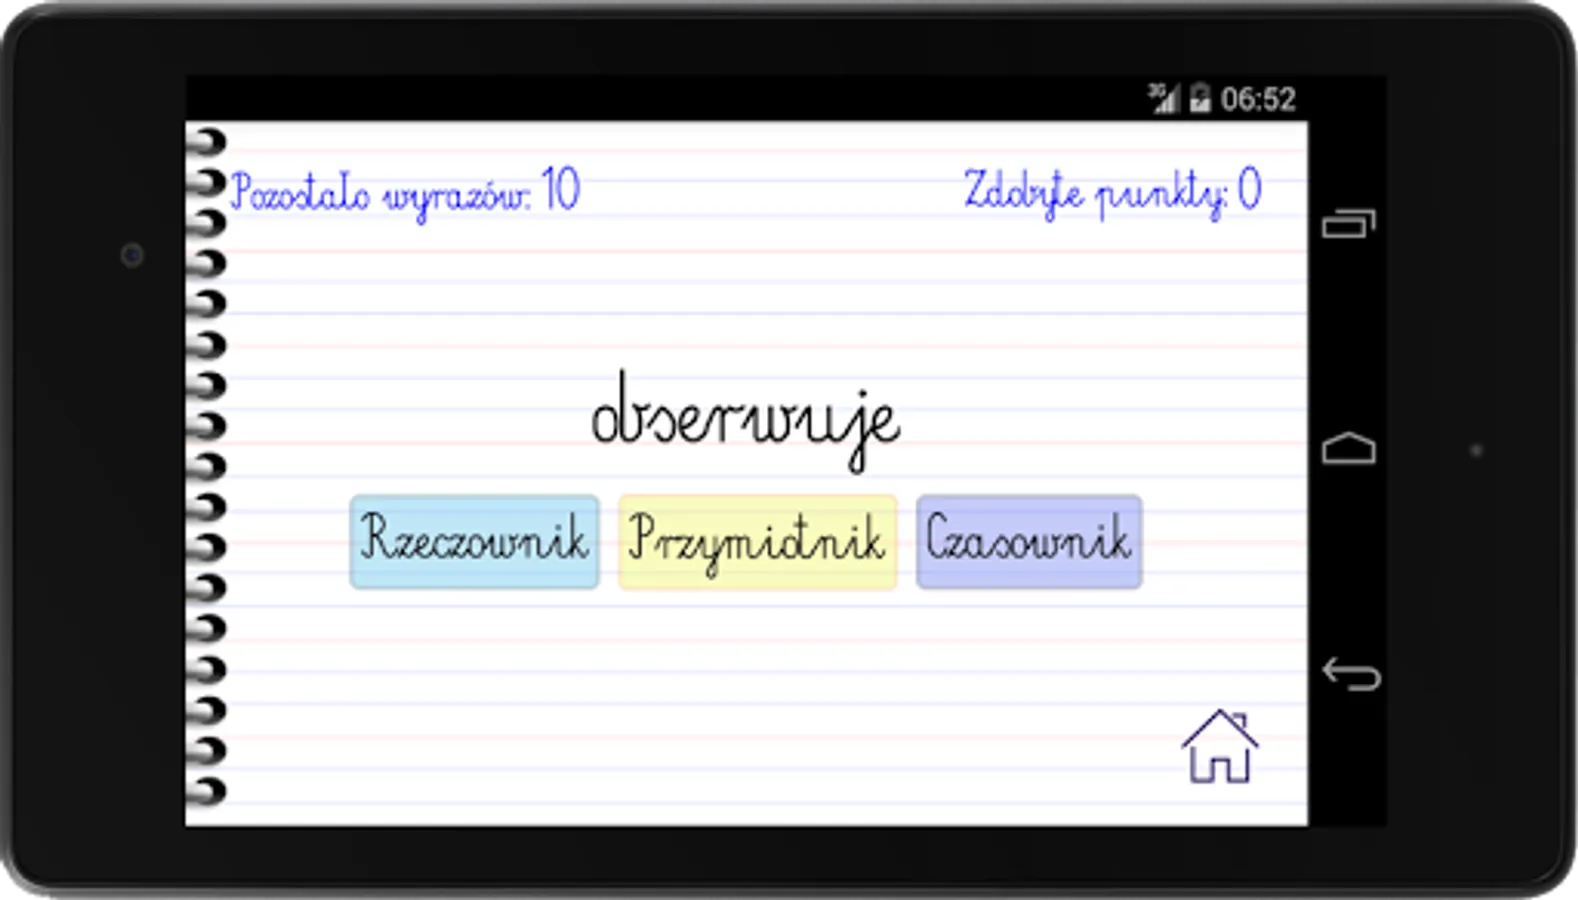 3G 06:52
Pozostało wyrazów: 10 Zdobyte punkty: 0
obserwuje
Rzeczownik Przymiotnik Czasownik